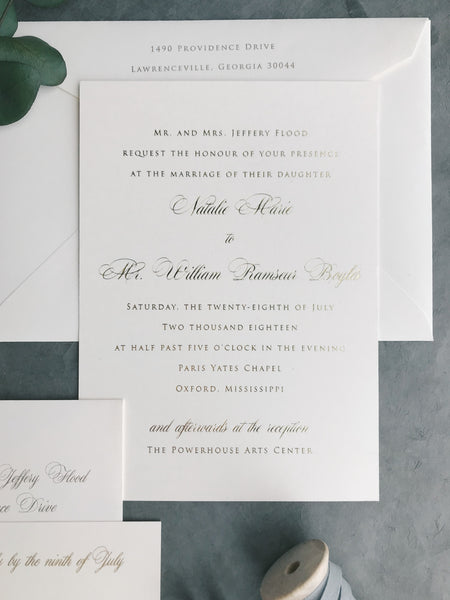 1490 Providence Drive
Lawrenceville, Georgia 30044
Mr. and Mrs. Jeffery Flood
request the honour of your presence
at the marriage of their daughter
Natalie Marie
to
Mr. William Ramseur Boyles
Saturday, the twenty-eighth of July
Two thousand eighteen
at half past five o'clock in the evening
Paris Yates Chapel
Oxford, Mississippi
and afterwards at the reception
The Powerhouse Arts Center
Jeffery Flood
Drive
by the ninth of July